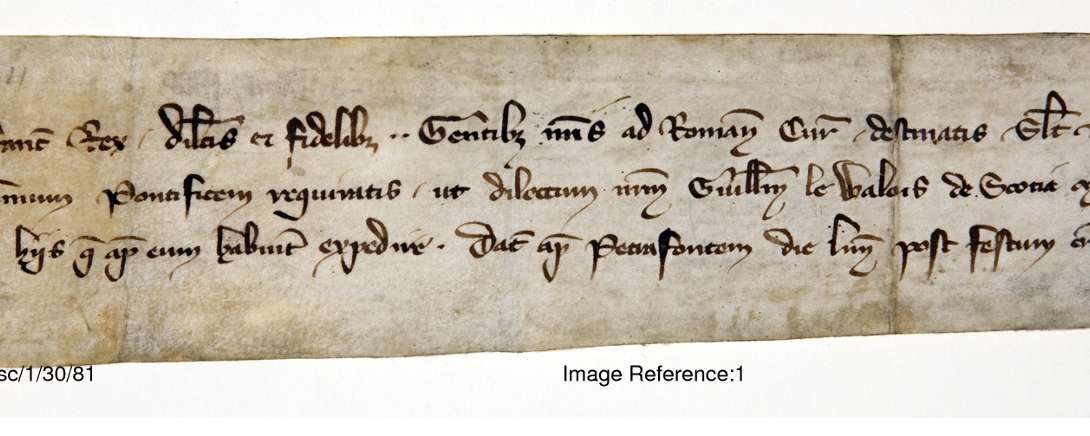 Rex dilcis et fidelibȝ ·· Gentibȝ nris ad Romanā Cur destinatis Slt
Pontificem requiratis ut dilectum nrm Guillm le Walois de Scotia
hijs q ap eum habuit expedire . Dat ap Petrafontem die lune post festum
sc/1/30/81
Image Reference:1